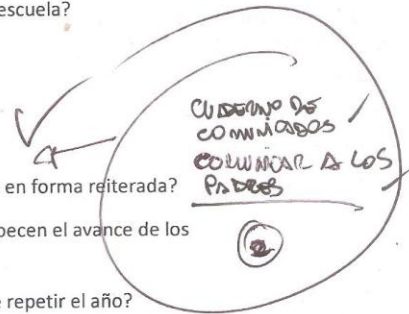 escuela?
CUADERNO DE
COMUNICADOS
COMUNICAR A LOS
PADRES
en forma reiterada?
pecen el avance de los
repetir el año?